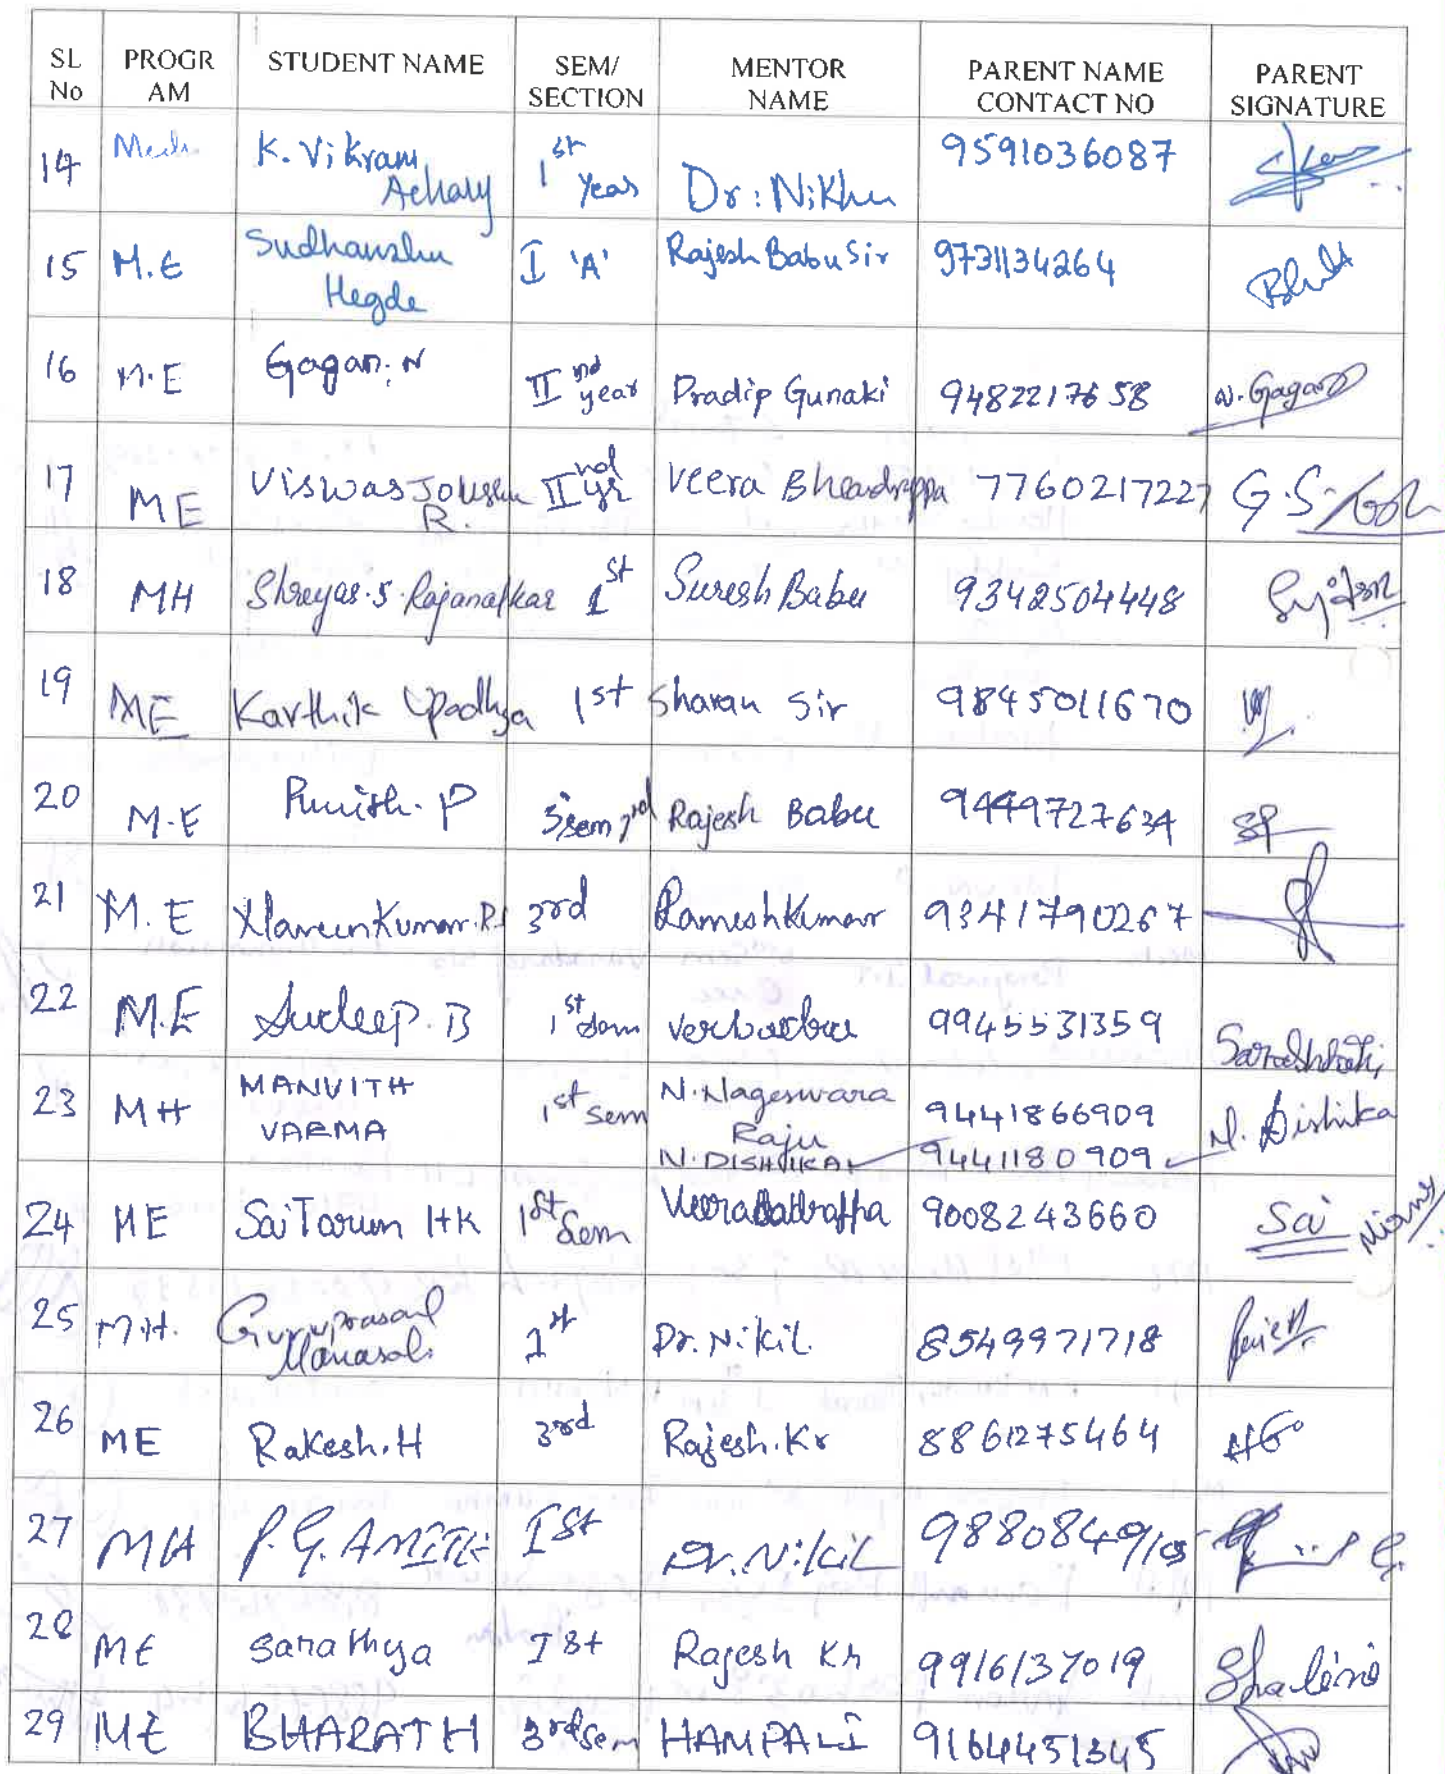 SL No PROGR AM STUDENT NAME SEM/ SECTION MENTOR NAME PARENT NAME CONTACT NO PARENT SIGNATURE
14 Mech K. Vikram Achary 1st Year Dr: Nikhu 9591036087
15 M.E Sudhanshu Hegde I 'A' Rajesh Babu Sir 9731134264
16 M.E Gagan. N II nd year Pradip Gunaki 9482217658 N. Gagan
17 ME Viswas R. II nd yr Veera Bheadrappa 7760217227 G.S.
18 MH Shreyas. S. Rajanalkar 1st Suresh Babu 9342504448
19 ME Karthik Upadhya 1st Sharan Sir 9845011670
20 M.E Punith. P 3 sem Rajesh Babu 9449727634 SP
21 M.E Naveen Kumar. R.S 3rd Ramesh Kumar 9341790267
22 M.E Sudeep. B 1st Sem 9945531359
23 MH MANVITH VARMA 1st sem N. Nageswara Raju N. DISHIKA 9441866909 9441180909 N. Dishika
24 ME Sai Tarun H K 1st Sem Veerabadrappa 9008243660 Sai
25 M.H. Guruprasad Manasali 1st Dr. Nikil 8549971718
26 ME Rakesh. H 3rd Rajesh. Kr 8861275464
27 MH P. G. AMITH I St Dr. Nikil
28 ME Sarathya I st Rajesh Kr 9916137019 Shalini
29 ME BHARATH 3rd Sem HAMPALI 9164451345